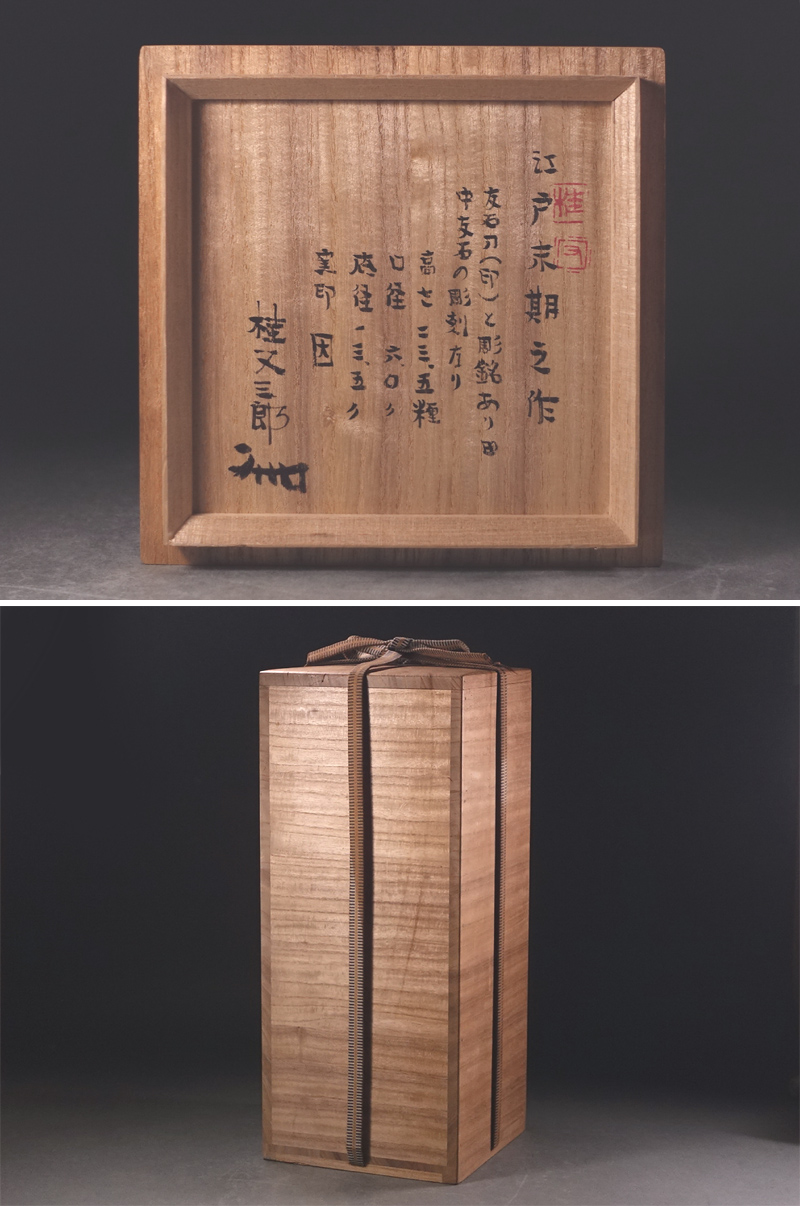 江戸末期之作
友石刀(印)と彫銘あり 印
中友石の彫刻左り
高さ 二三、五糎
口径 六、〇〃
底径 一三、五〃
窯印 因
桂又三郎